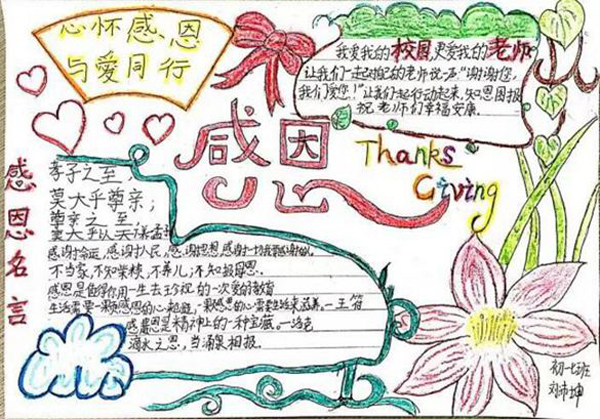 心怀感恩
与爱同行
我爱我的校园,更爱我的老师
让我们一起对自己的老师说一声"谢谢您,
我们爱您!"让我们一起行动起来,知恩图报
祝老师们幸福安康.
感恩
Thanks
Giving
感恩名言
孝子之至,
莫大乎尊亲;
尊亲之至,
莫大乎以天下养
感谢命运,感谢人民,感谢思想,感谢一切我要感谢的人
不当家,不知柴米,不养儿,不知报母恩.
感恩是
一生去
的一次爱的教育
生活需要一颗感恩的心
一颗感恩的心需要生活来滋养。—王符
感恩是精神上的一种宝藏。—洛克
滴水之恩,当涌泉相报.
初一七班